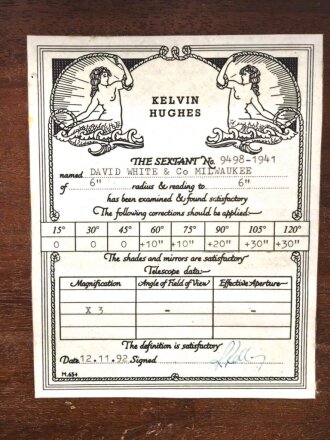 KELVIN
HUGHES
THE SEXTANT No. 9498-1941
named DAVID WHITE & Co MILWAUKEE
of 6" radius & reading to 6"
has been examined & found satisfactory
The following corrections should be applied:
15° 30° 45° 60° 75° 90° 105° 120°
0 0 0 +10" +10" +20" +30" +30"
The shades and mirrors are satisfactory
Telescope data:
Magnification Angle of Field of View Effective Aperture
X 3 - -
The definition is satisfactory
Date 12.11.92 Signed
M.654